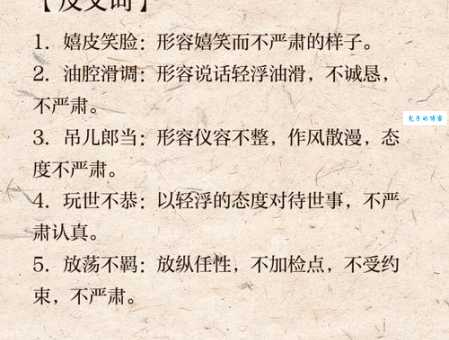 【反义词】
1. 嬉皮笑脸：形容嬉笑而不严肃的样子。
2. 油腔滑调：形容说话轻浮油滑，不诚恳，
不严肃。
3. 吊儿郎当：形容仪容不整，作风散漫，态
度不严肃。
4. 玩世不恭：以轻浮的态度对待世事，不严
肃认真。
5. 放荡不羁：放纵任性，不加检点，不受约
束，不严肃。